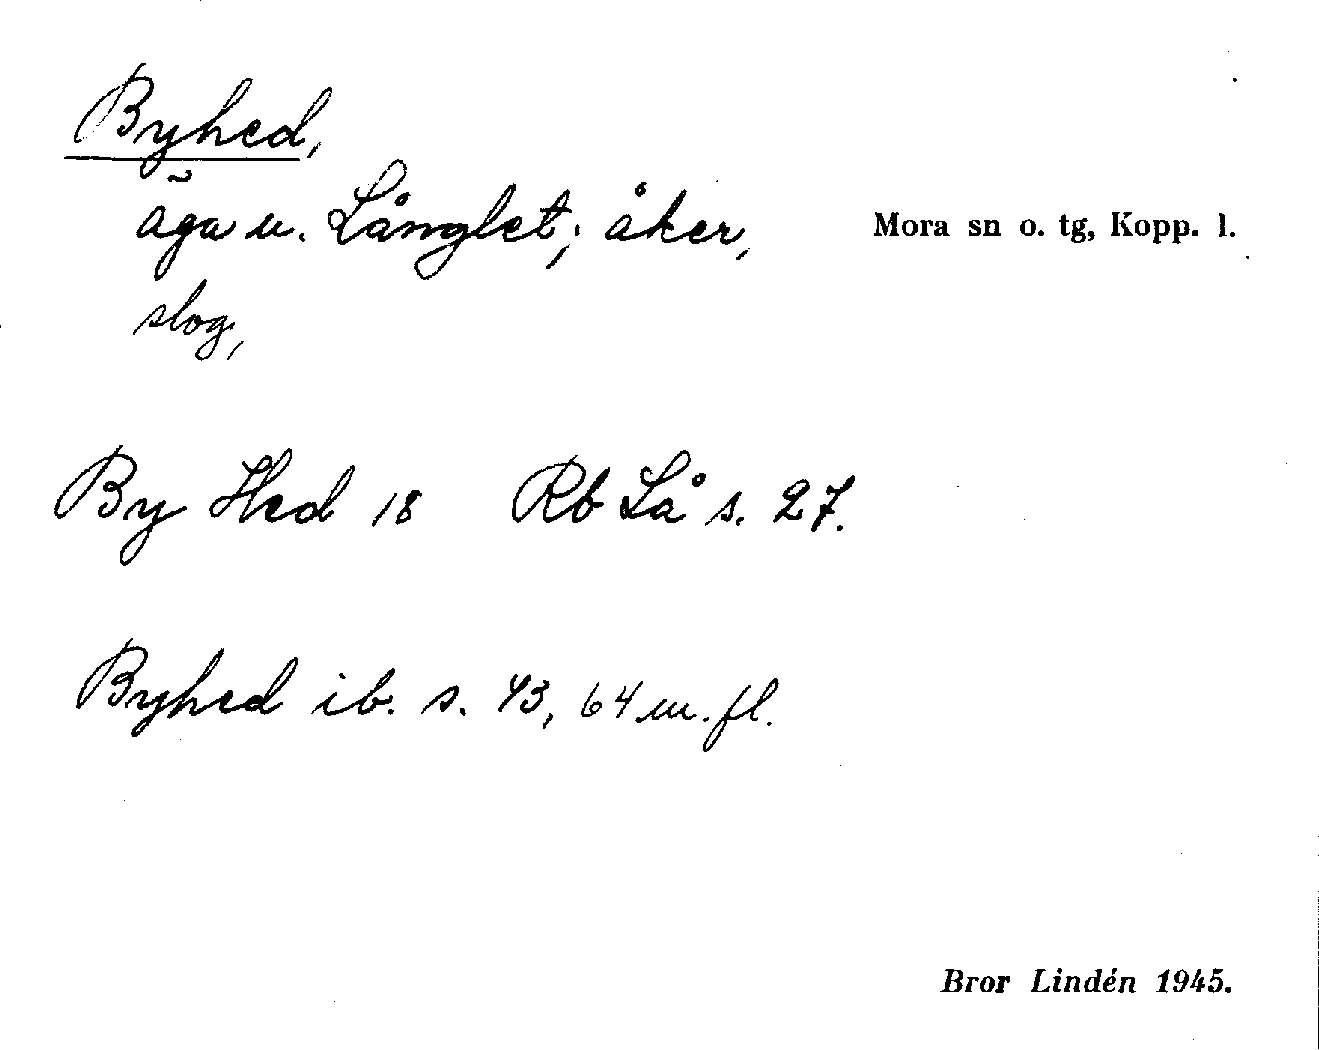 Byhed,
äga u. Långlet; åker,
Mora sn o. tg, Kopp. l.
slog,
By Hed 18 Rb Lå s. 27.
Byhed ib. s. 43, 64 m. fl.
Bror Lindén 1945.